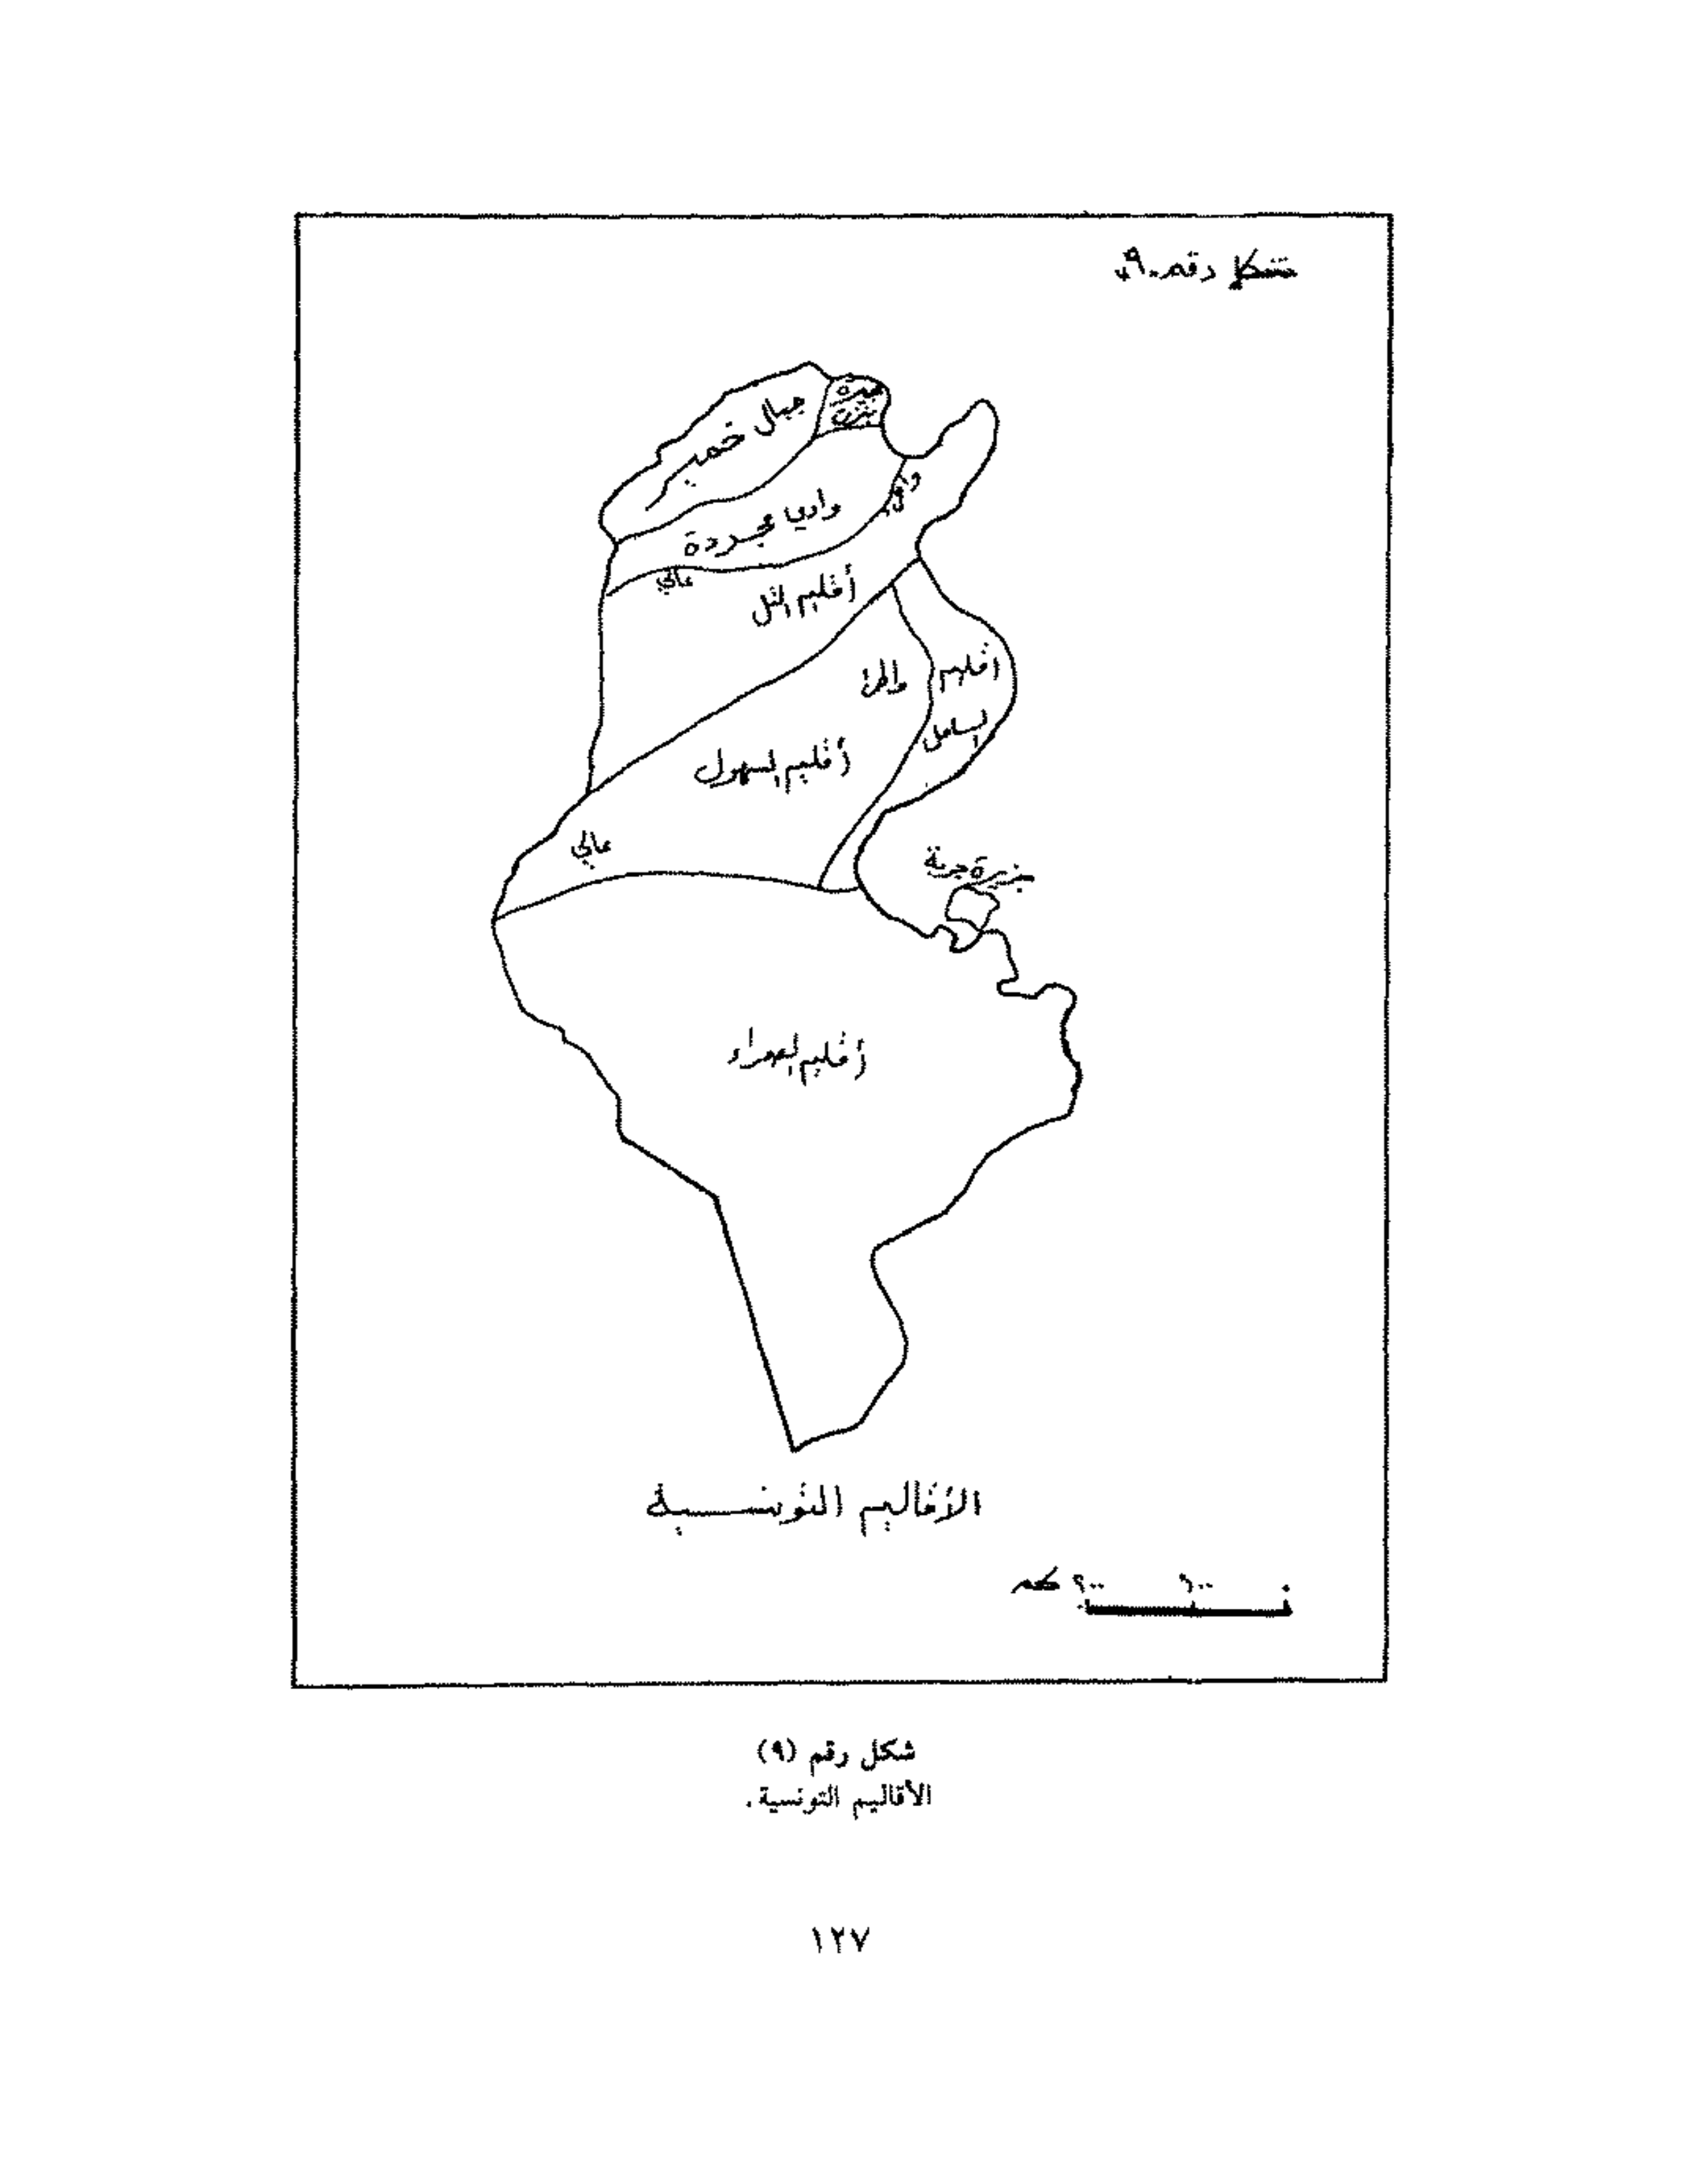 شكل رقم ٩٠
بحيرة
بنزرت
جبال خمير
وادي مجردة
عالي
أقليم التل
أقليم
الساحل
أقليم السهول
عالي
جزيرة جربة
أقليم الصحراء
الأقاليم التونسية
٠ ١٠٠ ٢٠٠ كم
شكل رقم (٩)
الأقاليم التونسية .
١٢٧